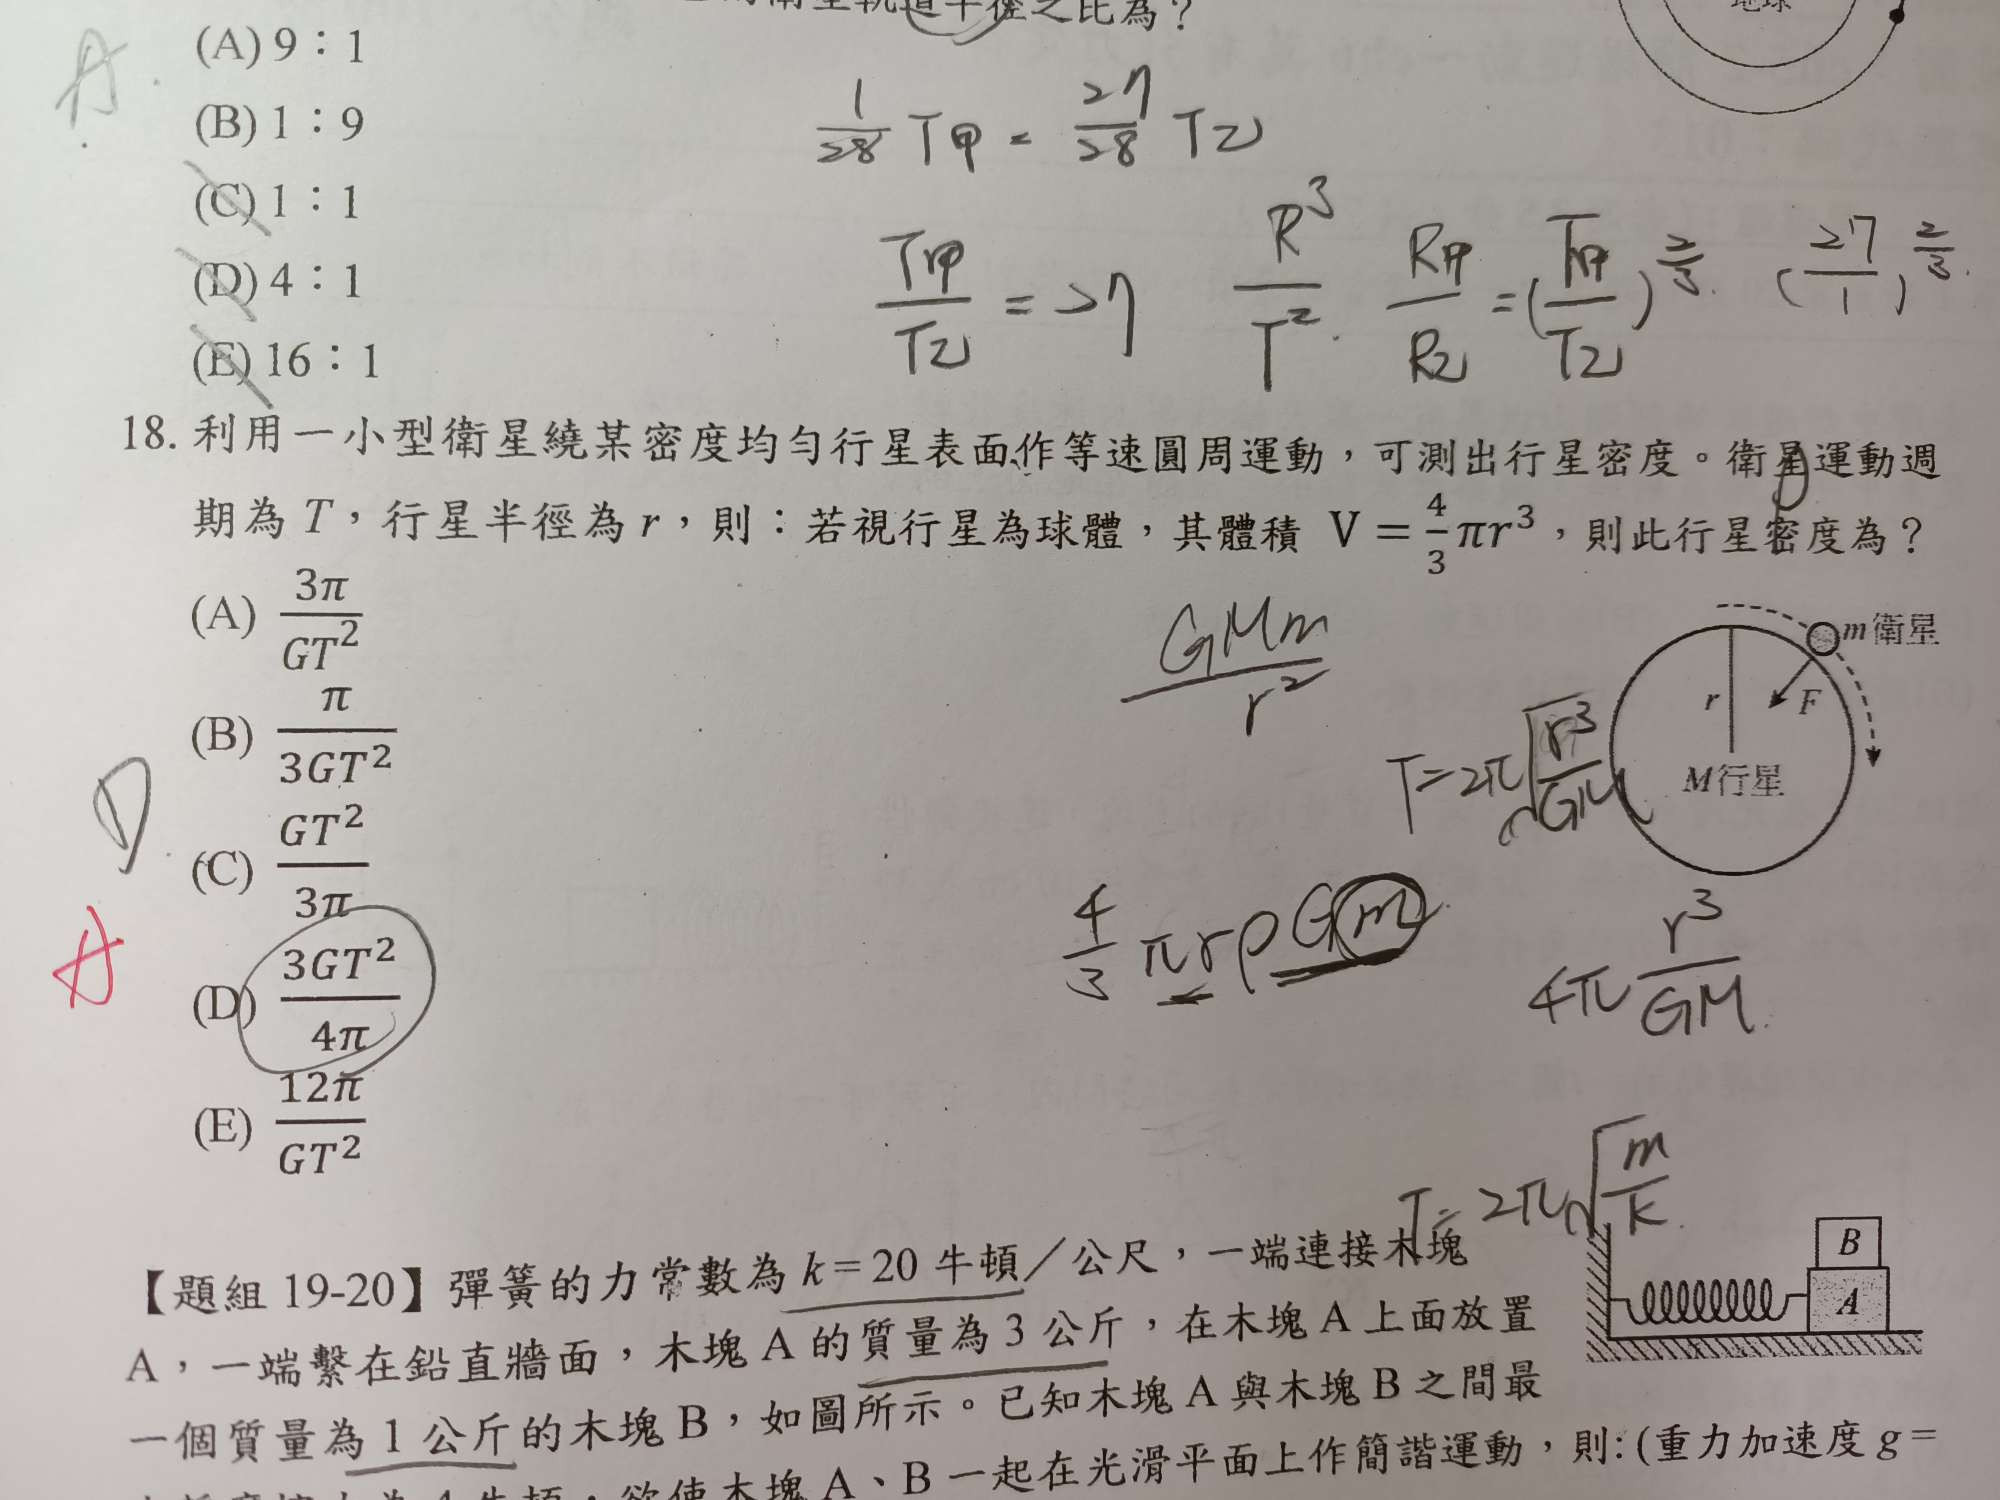 衛星軌道半徑之比為？
地球
(A) 9：1
A.
(B) 1：9
(C) 1：1
(D) 4：1
(E) 16：1
1/28 T甲 = 27/28 T乙
T甲/T乙 = 27
R³/T²
R甲/R乙 = (T甲/T乙)^(2/3)
(27/1)^(2/3)
18. 利用一小型衛星繞某密度均勻行星表面作等速圓周運動，可測出行星密度。衛星運動週
期為 T，行星半徑為 r，則：若視行星為球體，其體積 V = 4/3 πr³，則此行星密度為？
ρ
(A) 3π/GT²
(B) π/3GT²
(C) GT²/3π
(D) 3GT²/4π
(E) 12π/GT²
D
A
GMm/r²
T = 2π√(r³/GM)
m衛星
r
F
M行星
4/3 πrρGm
4π r³/GM
T = 2π√(m/k)
B
A
【題組 19-20】彈簧的力常數為 k = 20 牛頓／公尺，一端連接木塊
A，一端繫在鉛直牆面，木塊 A 的質量為 3 公斤，在木塊 A 上面放置
一個質量為 1 公斤的木塊 B，如圖所示。已知木塊 A 與木塊 B 之間最
為 4 牛頓，欲使木塊 A、B 一起在光滑平面上作簡諧運動，則: (重力加速度 g =